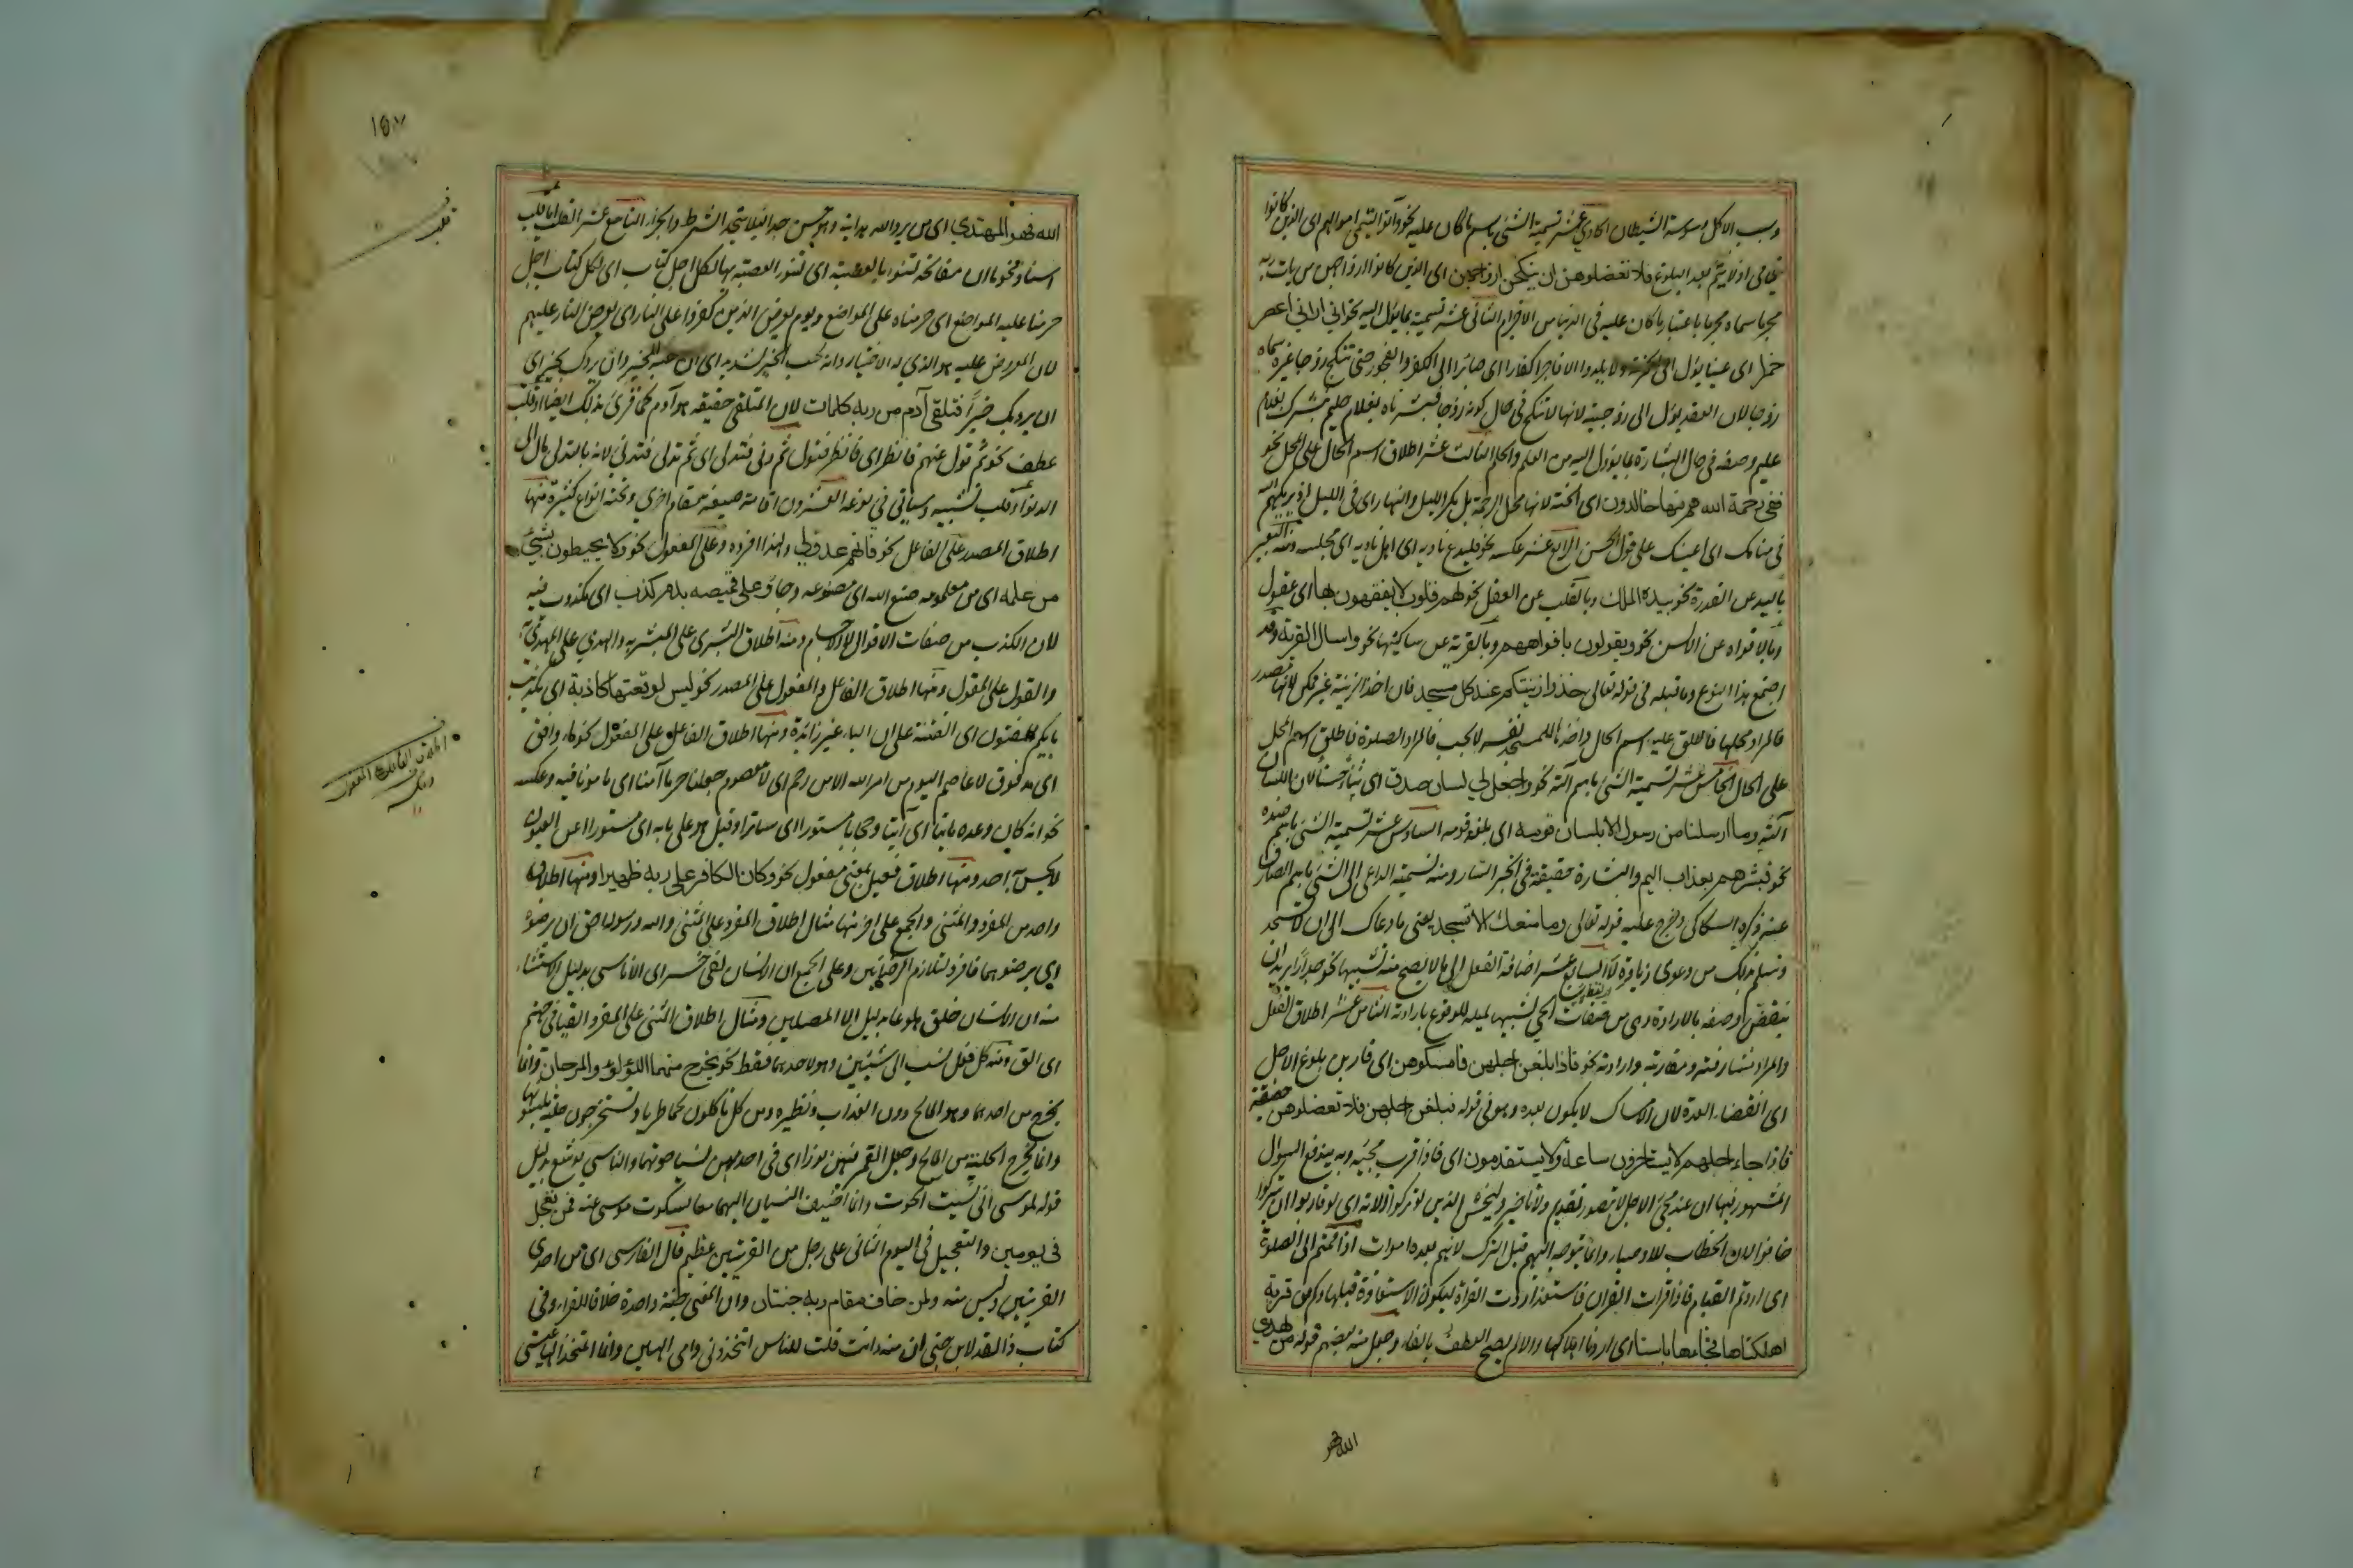 وسبب الاكل وسوسة الشيطان الحادي عشر تسمية الشئ باسم ما كان عليه نحو وآتوا اليتمى اموالهم اى الذين كانوا
يتامى اذ لا يتم بعد البلوغ فلا تعضلوهن ان ينكحن ازواجهن اى الذين كانوا ازواجهن من يات ربه
مجرما سماه مجرما باعتبار ما كان عليه فى الدنيا من الاجرام الثانى عشر تسمية بما يؤل اليه نحو انى ارانى اعصر
خمرا اى عنبا يؤل الى الخمرية ولا يلدوا الا فاجرا كفارا اى صائرا الى الكفر والفجور حتى تنكح زوجا غيره سماه
زوجا لان العقد يؤل الى زوجية لانها لا تنكح فى حال كونه زوجا فبشرناه بغلام حليم نبشرك بغلام
عليم وصفه فى حال البشارة بما يؤول اليه من العلم والحلم الثالث عشر اطلاق اسم الحال على المحل نحو
ففى رحمة الله هم فيها خالدون اى الجنة لانها محل الرحمة بل مكر الليل والنهار اى فى الليل اذ يريكهم الله
فى منامك اى عينك على قول الحسن الرابع عشر عكسه نحو فليدع ناديه اى اهل ناديه اى مجلسه ومنه التعبير
باليد عن القدرة نحو بيده الملك وبالقلب عن العقل نحو لهم قلوب لا يفقهون بها اى عقول
وبالافواه عن الالسن نحو ويقولون بافواههم وبالقرية عن ساكنيها نحو واسال القرية وقد
اجتمع هذا النوع وما قبله فى قوله تعالى خذوا زينتكم عند كل مسجد فان اخذ الزينة غير ممكن لانها مصدر
فالمراد محلها فاطلق عليه اسم الحال واخذها للمسجد نفسه لا يجب فالمراد الصلوة فاطلق اسم المحل
على الحال الخامس عشر تسمية الشئ باسم آلته نحو واجعل لي لسان صدق اى ثناء حسنا لان اللسان
آلته وما ارسلنا من رسول الا بلسان قومه اى بلغة قومه السادس عشر تسمية الشئ باسم ضده
نحو فبشرهم بعذاب اليم والبشارة حقيقة فى الخبر السار ومنه تسمية الداعى الى الشئ باسم الصارف
عنه ذكره السكاكى وخرج عليه قوله تعالى وما منعك الا تسجد يعنى ما دعاك الى ان لا تسجد
وتسلم بذلك من دعوى زيادة لا السابع عشر اضافة الفعل الى ما لا يصح منه تشبيها نحو جدارا يريد ان
ينقض وصفه بالارادة وهى من صفات الحى تشبيها لميله للوقوع بارادته الثامن عشر اطلاق الفعل
والمراد مشارفته ومقاربته وارادته نحو فاذا بلغن اجلهن فامسكوهن اى قاربن بلوغ الاجل
اى انقضاء العدة لان الامساك لا يكون بعده وهو فى قوله فبلغن اجلهن فلا تعضلوهن حقيقة
فاذا جاء اجلهم لا يستاخرون ساعة ولا يستقدمون اى فاذا قرب مجيئه وبه يندفع السوال
المشهور فيها ان عند مجئ الاجل لا يتصور تقديم ولا تاخير وليخش الذين لو تركوا الاية اى لو قاربوا ان يتركوا
خافوا لان الخطاب للاوصياء وانما يتوجه اليهم قبل الترك لانهم بعده اموات اذا قمتم الى الصلوة
اى اردتم القيام فاذا قرات القران فاستعذ اى اردت القراة لتكون الاستعاذة قبلها وكم من قرية
اهلكناها فجاءها باسنا اى اردنا اهلاكها والا لم يصح العطف بالفاء وجعل منه بعضهم قوله من يهدى
الله فهو
١٥٧
الله فهو المهتدي اى من يرد الله هدايته وهو حسن جدا لئلا يتحد الشرط والجزاء التاسع عشر القلب اما قلب
اسناد نحو ما ان مفاتحه لتنوء بالعصبة اى لتنوء العصبة بها لكل اجل كتاب اى لكل كتاب اجل
حرمنا عليه المراضع اى حرمناه على المراضع ويوم يعرض الذين كفروا على النار اى يعرض النار عليهم
لان المعروض عليه هو الذي له الاختيار وانه لحب الخير لشديد اى ان حبه للخير وان يردك بخير اى
ان يرد بك خيرا فتلقى آدم من ربه كلمات لان المتلقى حقيقة هو آدم كما قرئ بذلك ايضا او قلب
عطف نحو ثم تول عنهم فانظر اى فانظر فتول ثم دنى فتدلى اى ثم تدلى فتدنى لانه بالتدلى مال الى
الدنو او قلب تشبيه وسياتى في نوعه العشرون اقامة صيغة مقام اخرى وتحته انواع كثيرة منها
اطلاق المصدر على الفاعل نحو فانهم عدو لى ولهذا افرده وعلى المفعول نحو ولا يحيطون بشئ
من علمه اى من معلومه صنع الله اى مصنوعه وجاؤ على قميصه بدم كذب اى مكذوب فيه
لان الكذب من صفات الاقوال لا الاجسام ومنه اطلاق البشرى على المبشر به والهوى على المهوى
والقول على المقول ومنها اطلاق الفاعل والمفعول على المصدر نحو ليس لوقعتها كاذبة اى تكذيب
بايكم المفتون اى الفتنة على ان الباء غير زائدة ومنها اطلاق الفاعل على المفعول نحو ماء دافق
اى مدفوق لا عاصم اليوم من امر الله الا من رحم اى لا معصوم جعلنا حرما آمنا اى مامونا فيه وعكسه
نحو انه كان وعده ماتيا اى آتيا وحجابا مستورا اى ساترا وقيل هو على بابه اى مستورا عن العيون
لا يحس به احد ومنها اطلاق فعيل بمعنى مفعول نحو وكان الكافر على ربه ظهيرا ومنها اطلاق
واحد من المفرد والمثنى والجمع على اخر منها مثال اطلاق المفرد على المثنى والله ورسوله احق ان يرضوه
اى يرضوهما فافرد لتلازم الرضائين وعلى الجمع ان الانسان لفى خسر اى الاناسى بدليل الاستثناء
منه ان الانسان خلق هلوعا بدليل الا المصلين ومثال اطلاق المثنى على المفرد القيا فى جهنم
اى الق ومنه كل فعل نسب الى شيئين وهو لاحدهما فقط نحو يخرج منهما اللؤلؤ والمرجان وانما
يخرج من احدهما وهو المالح دون العذب ونظيره ومن كل تاكلون لحما طريا وتستخرجون حلية تلبسونها
وانما تخرج الحلية من المالح وجعل القمر فيهن نورا اى فى احديهن نسيا حوتهما والناسي يوشع بدليل
قوله لموسى انى نسيت الحوت وانما اضيف النسيان اليهما معا لسكوت موسى عنه فمن تعجل
فى يومين والتعجيل فى اليوم الثانى على رجل من القريتين عظيم قال الفارسى اى من احدى
القريتين وليس منه ولمن خاف مقام ربه جنتان وان المعنى جنة واحدة خلافا للفراء وفى
كتاب ذا القد لابن جنى ان منه ءانت قلت للناس اتخذونى وامى الهين وانما المتخذ الها عيسى
قلب
اطلاق الفاعل على المفعول
وعكسه